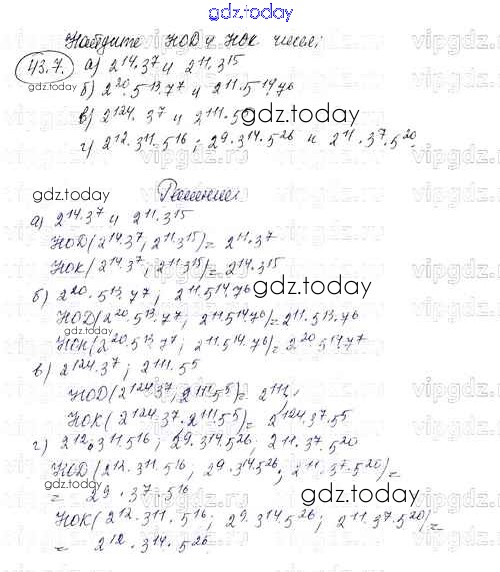 gdz.today
Найдите НОД и НОК чисел:
43.7. а) 2^14·3^7 и 2^11·3^15
б) 2^20·5^13·7^7 и 2^11·5^14·7^6
в) 2^124·3^7 и 2^111·5^5
г) 2^12·3^11·5^16; 2^9·3^14·5^26 и 2^11·3^7·5^20
gdz.today
gdz.today
gdz.today
Решение:
а) 2^14·3^7 и 2^11·3^15
НОД(2^14·3^7; 2^11·3^15)= 2^11·3^7
НОК(2^14·3^7; 2^11·3^15)= 2^14·3^15
б) 2^20·5^13·7^7; 2^11·5^14·7^6
gdz.today
НОД(2^20·5^13·7^7; 2^11·5^14·7^6)=2^11·5^13·7^6
НОК(2^20·5^13·7^7; 2^11·5^14·7^6)= 2^20·5^14·7^7
gdz.today
в) 2^124·3^7; 2^111·5^5
НОД(2^124·3^7; 2^111·5^5)= 2^111
НОК(2^124·3^7; 2^111·5^5)= 2^124·3^7·5^5
г) 2^12·3^11·5^16; 2^9·3^14·5^26; 2^11·3^7·5^20
НОД(2^12·3^11·5^16; 2^9·3^14·5^26; 2^11·3^7·5^20)=
= 2^9·3^7·5^16
gdz.today
НОК(2^12·3^11·5^16; 2^9·3^14·5^26; 2^11·3^7·5^20)=
= 2^12·3^14·5^26
gdz.today